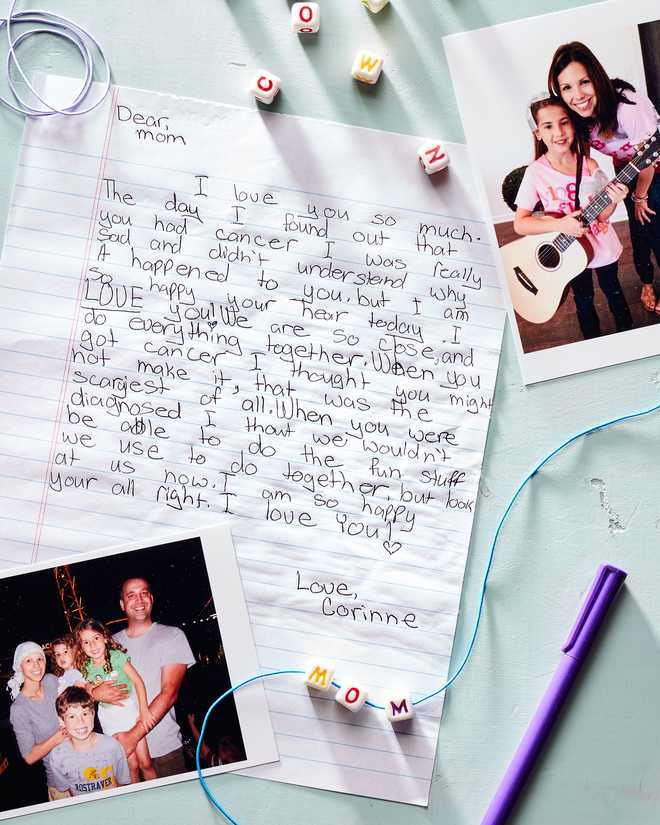 O
W
C
N
Dear,
mom
I love you so much.
The day I found out that
you had cancer I was really
sad and didn't understand why
it happened to you. but I am
so happy your hear today. I
LOVE you! We are so close, and
do everything together. When you
got cancer I thought you might
not make it, that was the
scaryiest of all. When you were
diagnosed I thout we wouldn't
be able to do the fun stuff
we use to do together, but look
at us now. I am so happy
your all right. I love You!
Love,
Corinne
MOM
ROSTRAVER